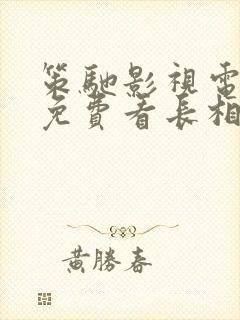 策馳影視電
免費看長相
黃勝春